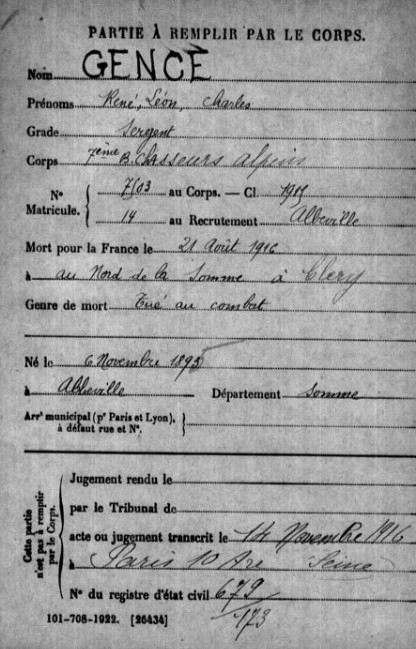 PARTIE À REMPLIR PAR LE CORPS.
Nom GENCE
Prénoms René, Léon, Charles
Grade Sergent
Corps 7ème B. Chasseurs alpins
N° Matricule. { 7503 au Corps. — Cl. 1915
14 au Recrutement Abbeville
Mort pour la France le 21 Août 1916
à au Nord de la Somme à Cléry
Genre de mort Tué au combat
Né le 6 Novembre 1895
à Abbeville Département Somme
Arrt municipal (pr Paris et Lyon), à défaut rue et N°. }
Cette partie n'est pas à remplir par le Corps.
Jugement rendu le
par le Tribunal de
acte ou jugement transcrit le 14 Novembre 1916
à Paris 10 Are Seine
N° du registre d'état civil 679/173
101-708-1922. [26434]